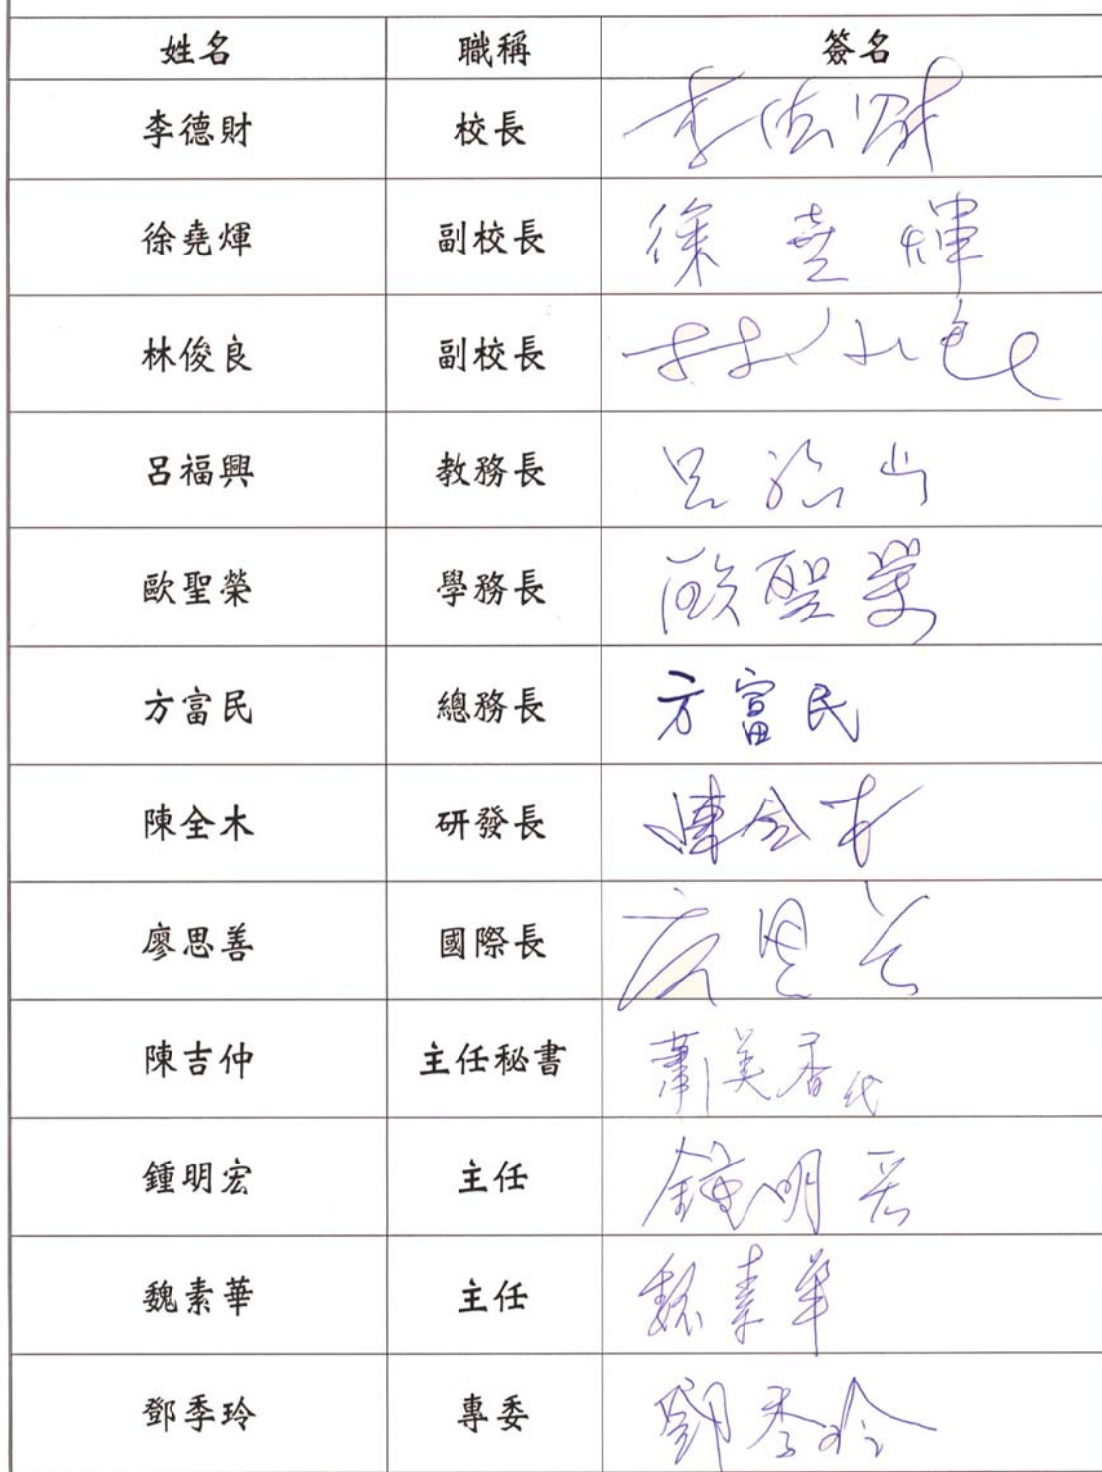 姓名 職稱 簽名
李德財 校長 李德財
徐堯煇 副校長 徐堯煇
林俊良 副校長 林俊良
呂福興 教務長 呂福興
歐聖榮 學務長 歐聖榮
方富民 總務長 方富民
陳全木 研發長 陳全木
廖思善 國際長 廖思善
陳吉仲 主任秘書 蕭美香代
鍾明宏 主任 鍾明宏
魏素華 主任 魏素華
鄧季玲 專委 鄧季玲